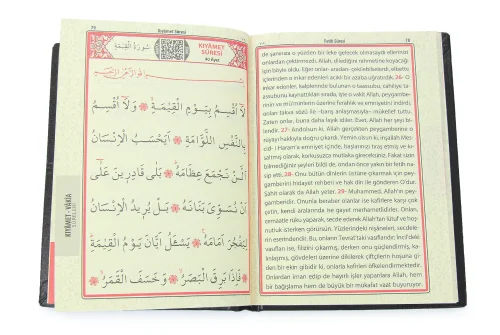 Kıyâmet Sûresi
KIYÂMET
SÛRESİ
40 Ayet
سُورَةُ الْقِيٰمَةِ
لَٓا اُقْسِمُ بِيَوْمِ الْقِيٰمَةِۙ وَلَٓا اُقْسِمُ
بِالنَّفْسِ اللَّوَّامَةِ اَيَحْسَبُ الْاِنْسَانُ
اَلَّنْ نَجْمَعَ عِظَامَهُۜ بَلٰى قَادِر۪ينَ عَلٰٓى
اَنْ نُسَوِّيَ بَنَانَهُ بَلْ يُر۪يدُ الْاِنْسَانُ
لِيَفْجُرَ اَمَامَهُۚ يَسْـَٔلُ اَيَّانَ يَوْمُ الْقِيٰمَةِۜ
فَاِذَا بَرِقَ الْبَصَرُۙ وَخَسَفَ الْقَمَرُۙ
KIYÂMET - VÂKIA
Fetih Sûresi
de şanınıza o yüzden bir leke gelecek olmasaydı ellerinizi
onlardan çektirmezdi. Allah, dilediğini rahmetine koyacağı
için böyle oldu. Eğer onlar aradan çekilebilselerdi, elbette
içlerinden o inkar edenleri acıklı bir azaba uğratırdık. 26- O
inkar edenler, kalplerinde bulunan o taassubu, cahiliye ta-
assubunu kaynattıkları sırada, işte o vakit Allah, peygambe-
rinin ve mü'minlerin üzerine ferahlık ve emniyetini indirdi,
onları takva sözü ile mükellef tuttu.
Zaten onlar, buna daha layık idiler. Evet, Allah her şeyi bi-
lir. 27- Andolsun ki, Allah gerçekten peygamberine o
rüyayı hakkıyla doğru çıkardı. Yemin olsun ki, inşallah Mesci-
d-i Haram'a emniyet içinde, başlarınızı tıraş etmiş ve kı-
saltmış olarak, korkusuzca mutlaka gireceksiniz. Fakat sizin
bilmediğiniz şeyleri bildi de, ondan önce yakın bir fetih na-
sip etti. 28- Onu bütün dinlerin üstüne çıkarmak için pey-
gamberini hidayet rehberi ve hak din ile gönderen O'dur.
Şahit olarak da Allah yeter. 29- Muhammed, Allah'ın pey-
gamberidir. Onunla beraber olanlar ise kafirlere karşı çok
çetin, kendi aralarında ise gayet merhametlidirler. Onları,
cemaatle rüku yaparak, secde ederek Allah'tan lütuf ve hoş-
nutluk isterken görürsün. Yüzlerindeki nişaneleri, secde-
lerin eserindendir. Bu, onların Tevrat'taki vasıflarıdır. İncil'deki
vasıfları ise, filizini çıkarmış, derken onu güçlendirmiş, ka-
lınlaşmış, gövdeleri üzerine dikilerek çiftçilerin hoşuna gi-
den bir ekin gibidir ki, onlarla kafirleri öfkelendirmektedir.
Onlardan iman edip de hayırlı işler yapanlara Allah, hem
bir bağışlama hem de büyük bir mükafat vaat buyuruyor.